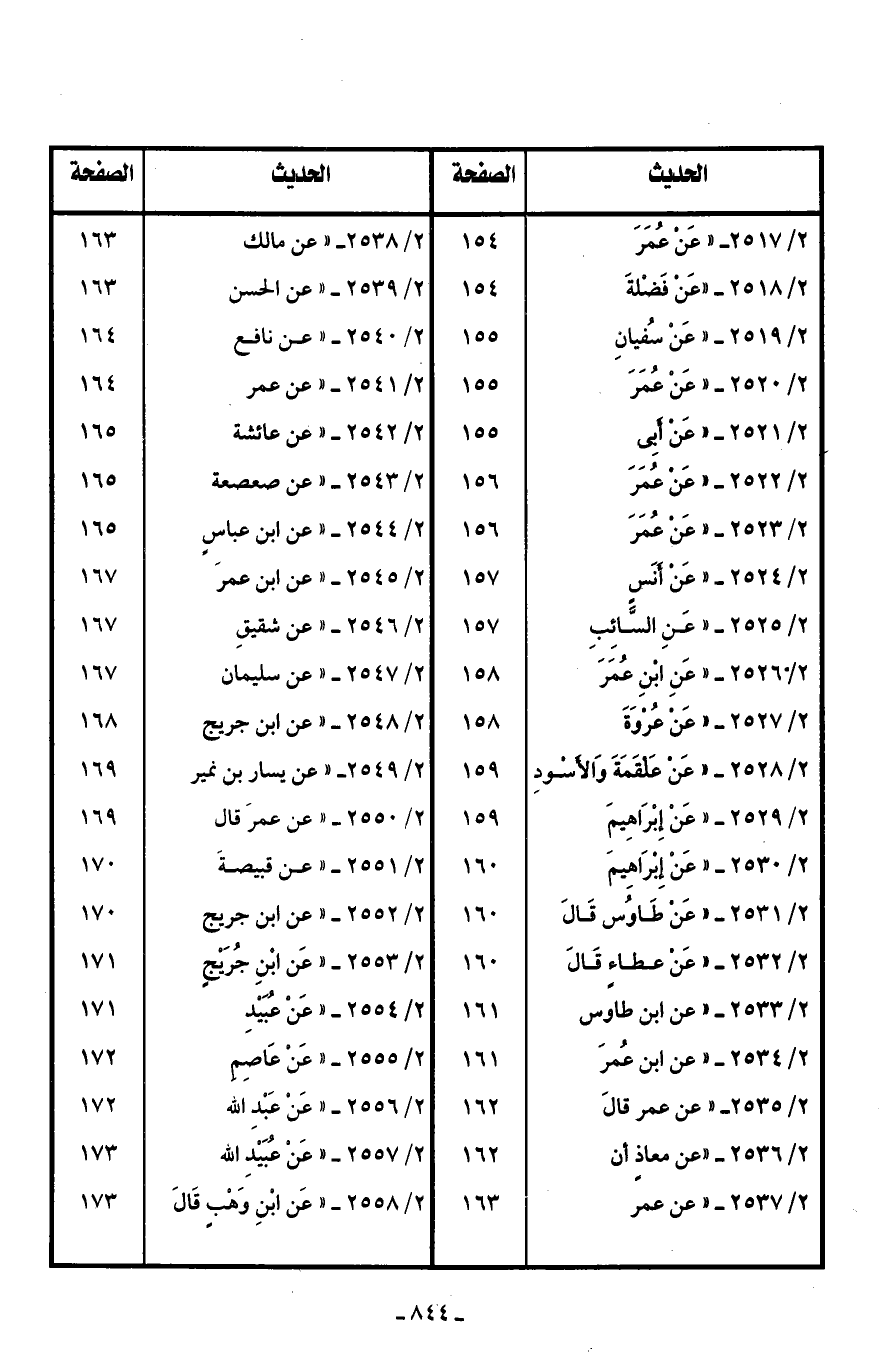 الحديث الصفحة الحديث الصفحة
٢/ ٢٥١٧ـ « عَنْ عُمَرَ ١٥٤ ٢/ ٢٥٣٨ـ « عن مالك ١٦٣
٢/ ٢٥١٨ ـ «عَنْ فَضْلةَ ١٥٤ ٢/ ٢٥٣٩ ـ « عن الحسن ١٦٣
٢/ ٢٥١٩ ـ « عَنْ سُفيانِ ١٥٥ ٢/ ٢٥٤٠ ـ « عـن نافـع ١٦٤
٢/ ٢٥٢٠ ـ « عَنْ عُمَرَ ١٥٥ ٢/ ٢٥٤١ ـ « عن عمر ١٦٤
٢/ ٢٥٢١ ـ « عَنْ أَبِى ١٥٥ ٢/ ٢٥٤٢ ـ « عن عائشة ١٦٥
٢/ ٢٥٢٢ ـ « عَنْ عُمَرَ ١٥٦ ٢/ ٢٥٤٣ ـ « عن صعصعة ١٦٥
٢/ ٢٥٢٣ ـ « عَنْ عُمَرَ ١٥٦ ٢/ ٢٥٤٤ ـ « عن ابن عباسٍ ١٦٥
٢/ ٢٥٢٤ ـ « عَنْ أَنَسٍ ١٥٧ ٢/ ٢٥٤٥ ـ « عن ابن عمرَ ١٦٧
٢/ ٢٥٢٥ ـ « عَـنِ السَّـائِبِ ١٥٧ ٢/ ٢٥٤٦ ـ « عن شقيقِ ١٦٧
٢/ ٢٥٢٦ ـ « عَنِ ابْنِ عُمَرَ ١٥٨ ٢/ ٢٥٤٧ ـ « عن سليمان ١٦٧
٢/ ٢٥٢٧ ـ « عَنْ عُرْوَةَ ١٥٨ ٢/ ٢٥٤٨ ـ « عن ابن جريج ١٦٨
٢/ ٢٥٢٨ ـ « عَنْ عَلْقَمَةَ وَالأَسْودِ ١٥٩ ٢/ ٢٥٤٩ـ « عن يسار بن نمير ١٦٩
٢/ ٢٥٢٩ ـ « عَنْ إِبْرَاهِيمَ ١٥٩ ٢/ ٢٥٥٠ ـ « عن عمرَ قال ١٦٩
٢/ ٢٥٣٠ ـ « عَنْ إِبْرَاهِيمَ ١٦٠ ٢/ ٢٥٥١ ـ « عـن قبيصـةَ ١٧٠
٢/ ٢٥٣١ ـ « عَنْ طَـاوُس قَـالَ ١٦٠ ٢/ ٢٥٥٢ ـ « عن ابن جريج ١٧٠
٢/ ٢٥٣٢ ـ « عَنْ عـطـاءٍ قَـالَ ١٦٠ ٢/ ٢٥٥٣ ـ « عَن ابْنِ جُرَيْجٍ ١٧١
٢/ ٢٥٣٣ ـ « عن ابن طاوس ١٦١ ٢/ ٢٥٥٤ ـ « عَنْ عُبَيْدِ ١٧١
٢/ ٢٥٣٤ ـ « عن ابن عُمرَ ١٦١ ٢/ ٢٥٥٥ ـ « عَنْ عَاصِمِ ١٧٢
٢/ ٢٥٣٥ـ « عن عمر قالَ ١٦٢ ٢/ ٢٥٥٦ ـ « عَنْ عَبْدِ الله ١٧٢
٢/ ٢٥٣٦ ـ «عن معاذٍ أن ١٦٢ ٢/ ٢٥٥٧ ـ « عَنْ عُبَيْدِ الله ١٧٣
٢/ ٢٥٣٧ ـ « عن عمر ١٦٣ ٢/ ٢٥٥٨ ـ « عَن ابْنِ وَهْبٍ قَالَ ١٧٣
ـ ٨٤٤ ـ